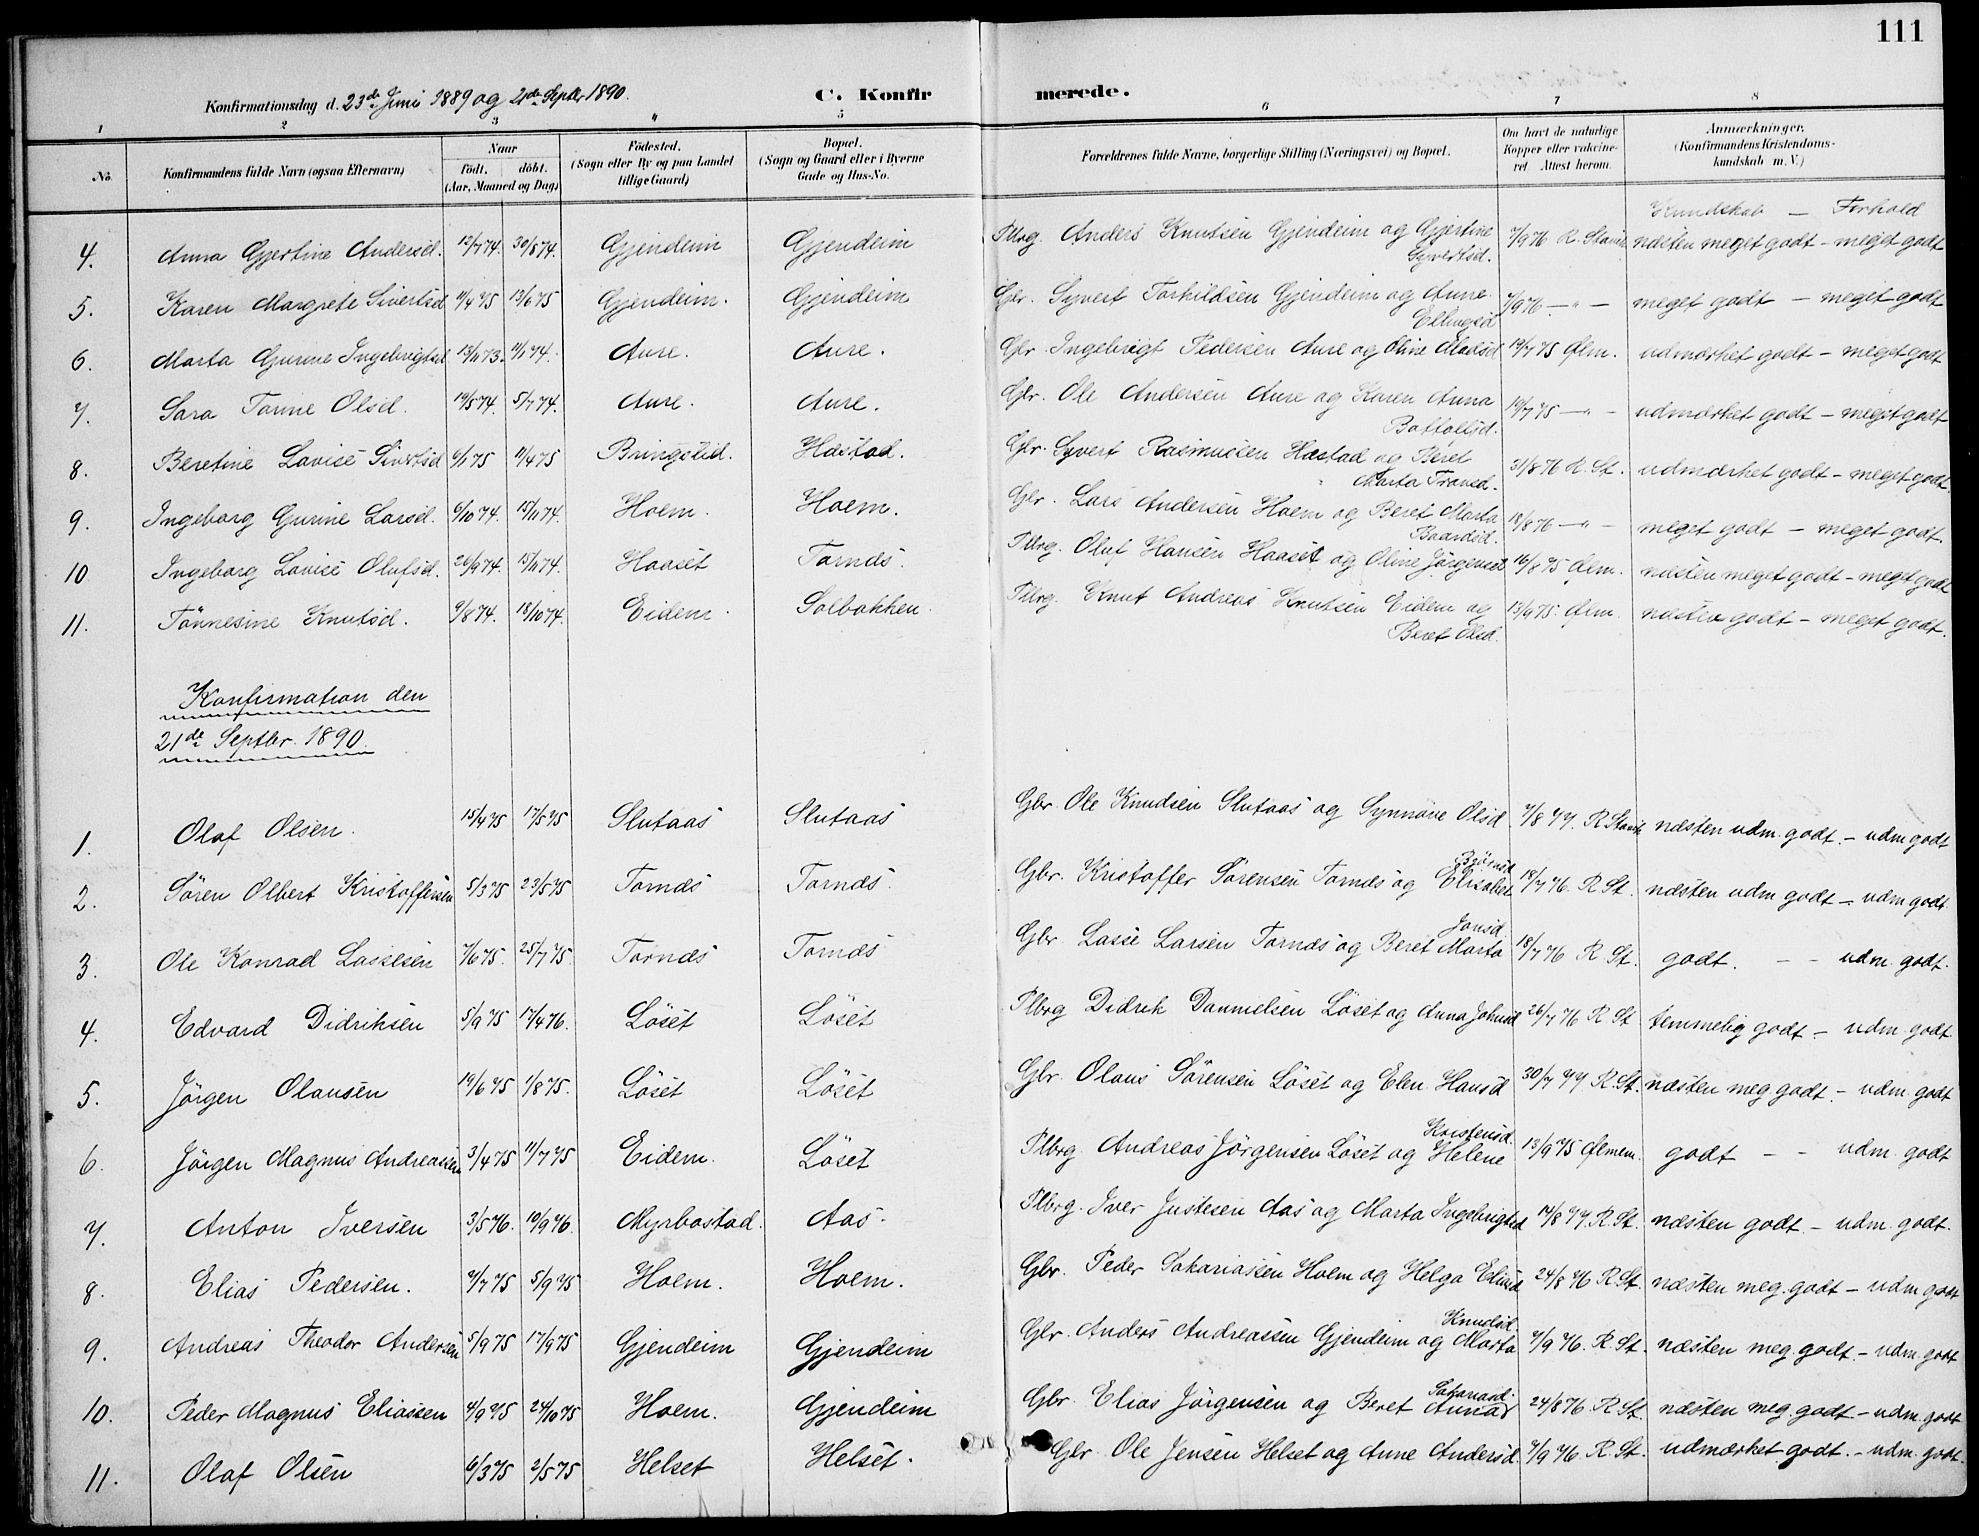 111
Konfirmationsdag d. 23de Juni 1889 og 21de Septbr 1890. C. Konfirmerede.
1 2 3 4 5 6 7 8
No. Konfirmandens fulde Navn (ogsaa Efternavn) Naar født. døbt. (Aar, Maaned og Dag) Fødested. (Sogn eller By og paa Landet tillige Gaard) Bopæl. (Sogn og Gaard eller i Byerne Gade og Hus-No. Forældrenes fulde Navne, borgerlige Stilling (Næringsvei) og Bopæl. Om havt de naturlige Kopper eller vakcineret. Attest herom. Anmærkninger. (Konfirmandens Kristendomskundskab m. V.)
Kundskab — Forhold
4. Anna Gjertine Andersd. 12/7 74. 30/8 74. Gjendeim Gjendeim Plbrg. Anders Knutsen Gjendeim og Gjertine Syvertsd. 7/9 76 R. Stavik næsten meget godt - meget godt
5. Karen Margrete Sivertsd 11/4 75 13/6 75 Gjendeim. Gjendeim Gbr. Syvert Torkildsen Gjendeim og Anne Ellingsd 7/9 76 — " — meget godt — meget godt
6. Marta Gurine Ingebrigtsd 13/11 73. 11/1 74. Aure. Aure. Gbr. Ingebrigt Pedersen Aure og Oline Madsd 19/7 75 Ølm. udmærket godt - meget godt
7. Sara Tomine Olsd. 19/5 74. 5/7 74. Aure. Aure. Gbr. Ole Andersen Aure og Karen Anna Bottolfsd. 19/7 75 — " - udmærket godt - meget godt
8. Beretine Lovise Sivertsd 6/1 75 11/4 75 Bringslid. Hæstad. Gbr. Syvert Rasmussen Hæstad og Beret Marta Transd. 31/8 76 R. St. udmærket godt - meget godt.
9. Ingeborg Gurine Larsd. 6/10 74. 15/11 74. Hoem. Hoem. Gbr. Lars Andersen Hoem og Beret Marta Baardsd. 18/8 76 — " - meget godt - meget godt.
10 Ingeborg Lovise Olufsd. 26/9 74. 15/11 74. Haaset Tornæs. Plbrg. Oluf Hansen Haaset og Oline Jørgensd 16/8 75 Ølm. næsten meget godt - meget godt
11. Tønnesine Knutsd. 9/8 74. 18/10 74. Eidem. Solbakken. Plbrg. Knut Andreas Knutsen Eidem og Beret Olsd. 13/9 75. Ølm. næsten godt - meget godt.
Konfirmation den
21de Septbr. 1890.
1. Olaf Olsen. 15/4 75 17/5 75 Slutaas Slutaas Gbr. Ole Knudsen Slutaas og Synnøve Olsd 7/8 77. R Stavik næsten udm. godt. - udm godt
2. Søren Olbert Kristoffersen 5/3 75 23/5 75 Tornæs Tornæs. Gbr. Kristoffer Sørensen Tornæs og Elisabet Bjørnsd 18/7 76. R St. næsten udm godt - udm godt.
3. Ole Konrad Lassesen 7/6 75. 25/7 75. Tornæs Tornæs Gbr Lasse Larsen Tornæs og Beret Marta Jonsd. 18/7 76 R St. godt. - - udm. godt.
4. Edvard Didriksen 5/9 75 17/4 76. Løset Løset Plbrg Didrik Dannielsen Løset og Anna Johnsd 26/7 76 R St temmelig godt - udm. godt.
5. Jörgen Olausen 19/6 75 1/8 75. Løset Løset Gbr. Olaus Sørensen Løset og Elen Hansd 30/7 77. R. St. næsten meg godt. - udm. godt
6. Jörgen Magnus Andreassen 3/4 75 11/7 75 Eidem. Løset Plbrg. Andreas Jørgensen Løset og Helene Kristensd. 13/9 75 Ølmem. godt - - udm. godt
7. Anton Iversen 3/5 76. 10/9 76. Myrbostad. Aas. Plbrg. Iver Justesen Aas og Marta Ingebrigtsd 14/8 77. R. St. næsten godt - udm. godt.
8. Elias Pedersen. 7/7 75 5/9 75 Hoem. Hoem. Gbr. Peder Sakariassen Hoem og Helga Eliasd 24/8 76 R. St. næsten meg. godt - udm godt
9. Andreas Theodor Andersen 5/9 75 17/9 75 Gjendeim Gjendeim Gbr. Anders Andreassen Gjendeim og Marta Knudsd. 7/9 76. R. St. næsten meg. godt. - udm. godt
10. Peder Magnus Eliassen 4/9 75 24/10 75 Hoem. Gjendeim Gbr. Elias Jørgensen og Beret Anna Sakariasd. 24/8 76 R St. næsten meg. godt - udm. godt
11. Olaf Olsen 6/3 75 2/5 75 Helset Helset. Gbr. Ole Jensen Helset og Anne Andersd. 7/9 76. R. St. udmærket godt. - udm. godt.